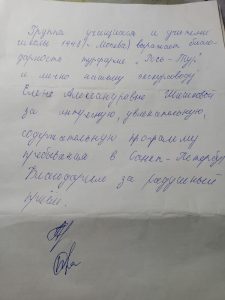 Группа учащихся и учителя
школы 1448 г. Москвы выражает благо-
дарность турфирме "Рось-Тур"
и лично нашему экскурсоводу
Елене Александровне
за интересную, увлекательную,
содержательную программу
пребывания в Санкт-Петербург
Благодарим за радушный
приём.